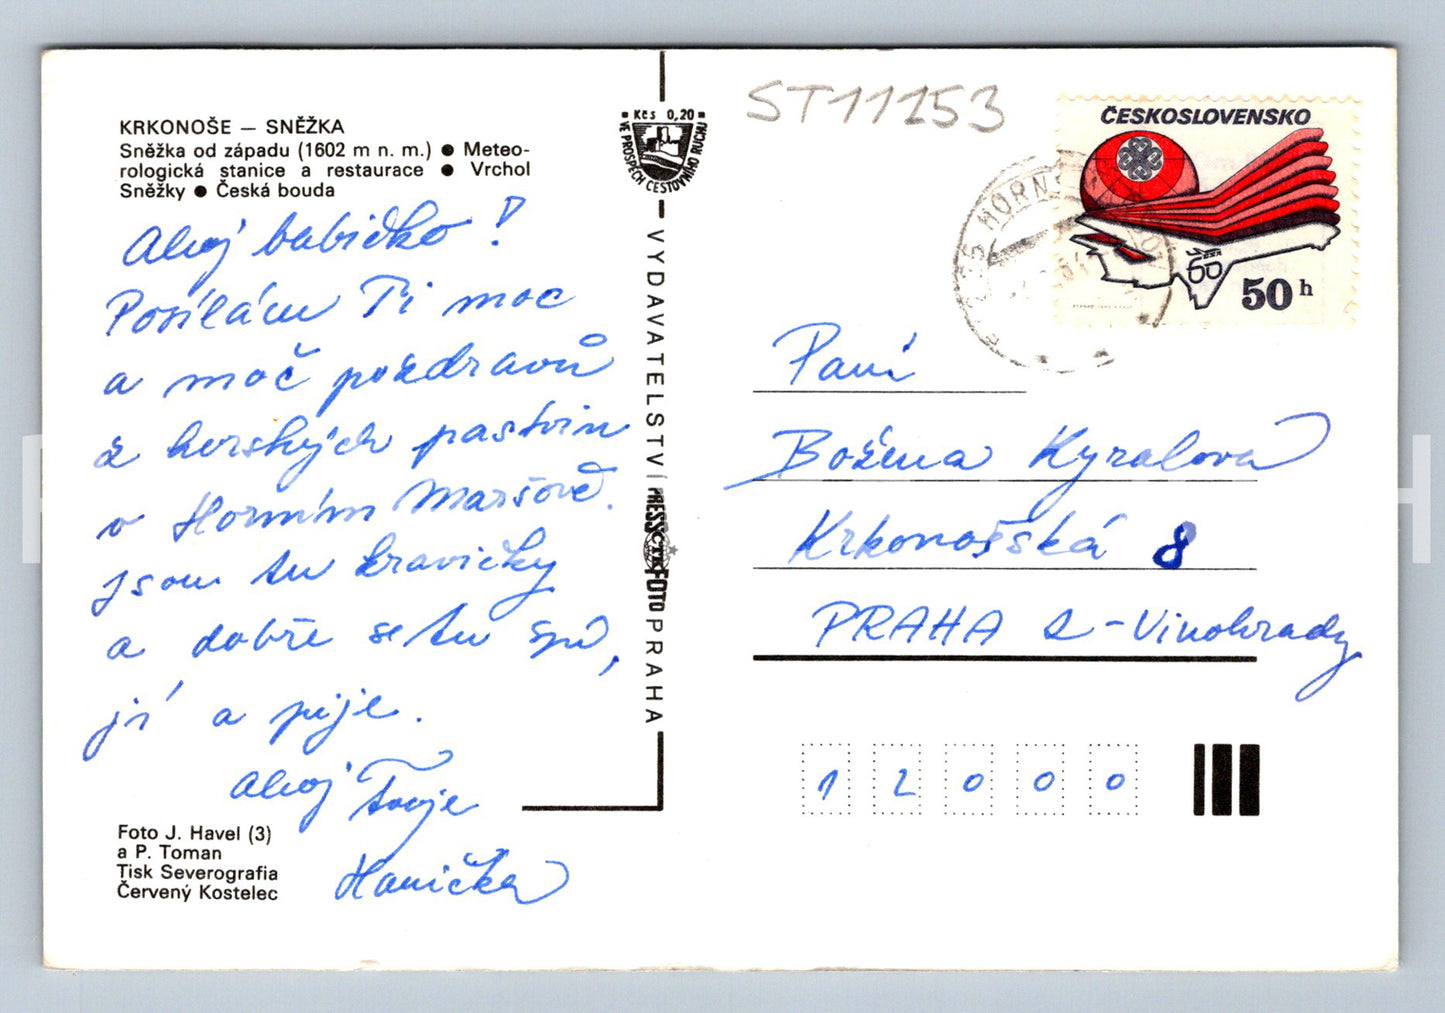 KRKONOŠE — SNĚŽKA
Sněžka od západu (1602 m n. m.) ● Meteo-
rologická stanice a restaurace ● Vrchol
Sněžky ● Česká bouda
Ahoj babičko!
Posílám Ti moc
a moc pozdravů
z horských pastvin
v Horním Maršově.
jsou tu kravičky
a dobře se tu spí,
jí a pije.
Ahoj Tvoje
Hanička
Foto J. Havel (3)
a P. Toman
Tisk Severografia
Červený Kostelec
Kčs 0,20
VE PROSPĚCH CESTOVNÍHO RUCHU
VYDAVATELSTVÍ PRESSFOTO PRAHA
ČTK
ST11153
ČESKOSLOVENSKO
50 h
HORNÍ
Paní
Božena Kyralová
Krkonošská 8
PRAHA 2 - Vinohrady
12000